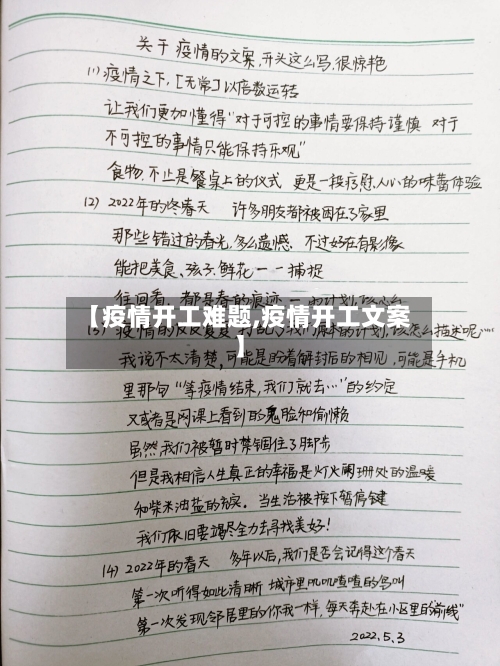 关于疫情的文案,开头这么写,很惊艳
(1)疫情之下,[无常]以倍数运转
让我们更加懂得"对于可控的事情要保持谨慎 对于
不可控的事情只能保持乐观"
食物,不止是餐桌上的仪式 更是一段疗慰人心的味蕾体验
(2) 2022年的终春天 许多朋友都被困在了家里
那些错过的春光,多么遗憾、不过好在有影像
能把美食、孩子、鲜花一一捕捉
往回看,都是春的痕迹
【疫情开工难题,疫情开工文案
】
该怎么描述呢…
我说不太清楚,可能是的着解封后的相见,可能是手机
里那句"等疫情结束,我们就去…"的约定
又或者是网课上看到的鬼脸和偷懒
虽然我们被暂时禁锢住了脚步
但是我相信人生真正的幸福是灯火阑珊处的温暖
和柴米油盐的充实。当生活被按下暂停键
我们依旧要竭尽全力去寻找美好!
(4) 2022年的春天 多年以后,我们是否会记得这个春天
第一次听得如此清晰 城市里叽叽喳喳的鸟叫
第一次发现邻居里的你我一样,每天奔赴在小区里的"前线"
2022.5.3